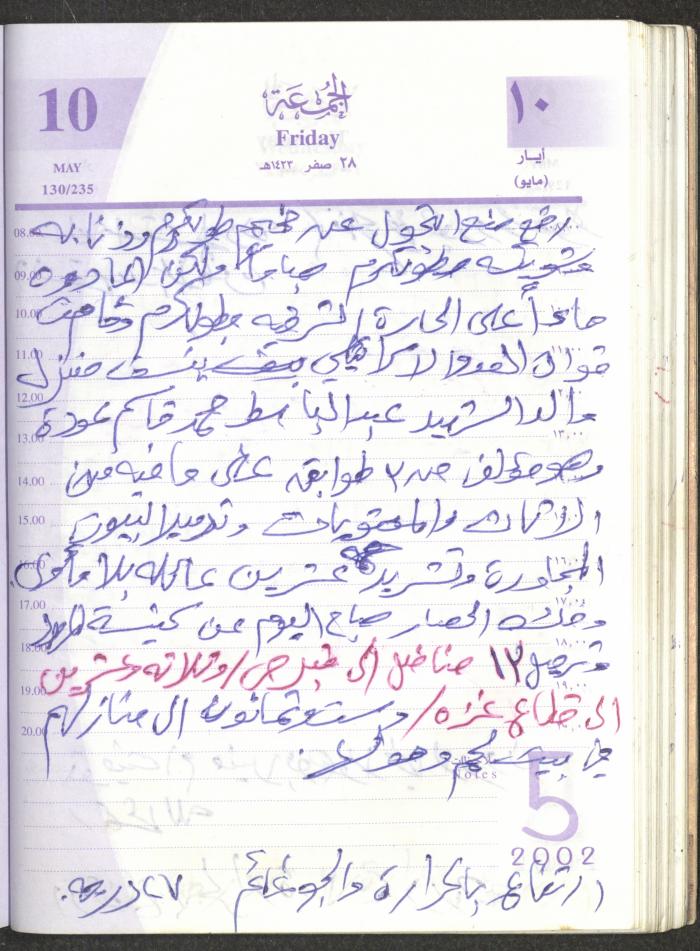 10
MAY
130/235
الجمعة
Friday
٢٨ صفر ١٤٢٣هـ
١٠
أيار
(مايو)
رفع منع التجول عن مخيم طولكرم وذنابه
وشويكه وطولكرم صباحاً ولكن
على الحارة الشرقيه بطولكرم وقامت
قوات العدو الاسرائيلي بنسف منزل
والد الشهيد عبد الباسط محمد قاسم عودة
وهو مؤلف من ٣ طوابق على ما فيه من
الاثاث والمحتويات وتدمير البيوت
المجاورة وتشريد عشرين عائله بلا مأوى
وفك الحصار صباح اليوم عن كنيسة المهد
وترحيل ١٣ مناضل الى قبرص / وثلاثه وعشرين
الى قطاع غزه / وستة وثمانون الى منازلهم
في بيت لحم وحولها.
ارتفاع بالحرارة والجو غائم ٢٧ درجه.
08.00
09.00
10.00
11.00
12.00
13.00
14.00
15.00
16.00
17.00
18.00
19.00
20.00
Notes
5
2002